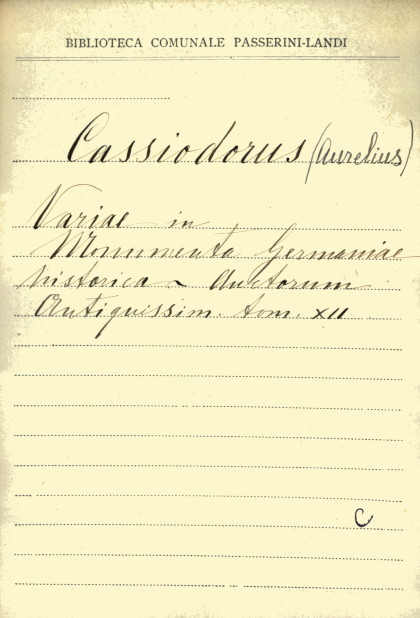 BIBLIOTECA COMUNALE PASSERINI-LANDI
Cassiodorus (Aurelius)
Variae in
Monumenta Germaniae
historica - Auctorum
Antiquissim. tom. XII
C